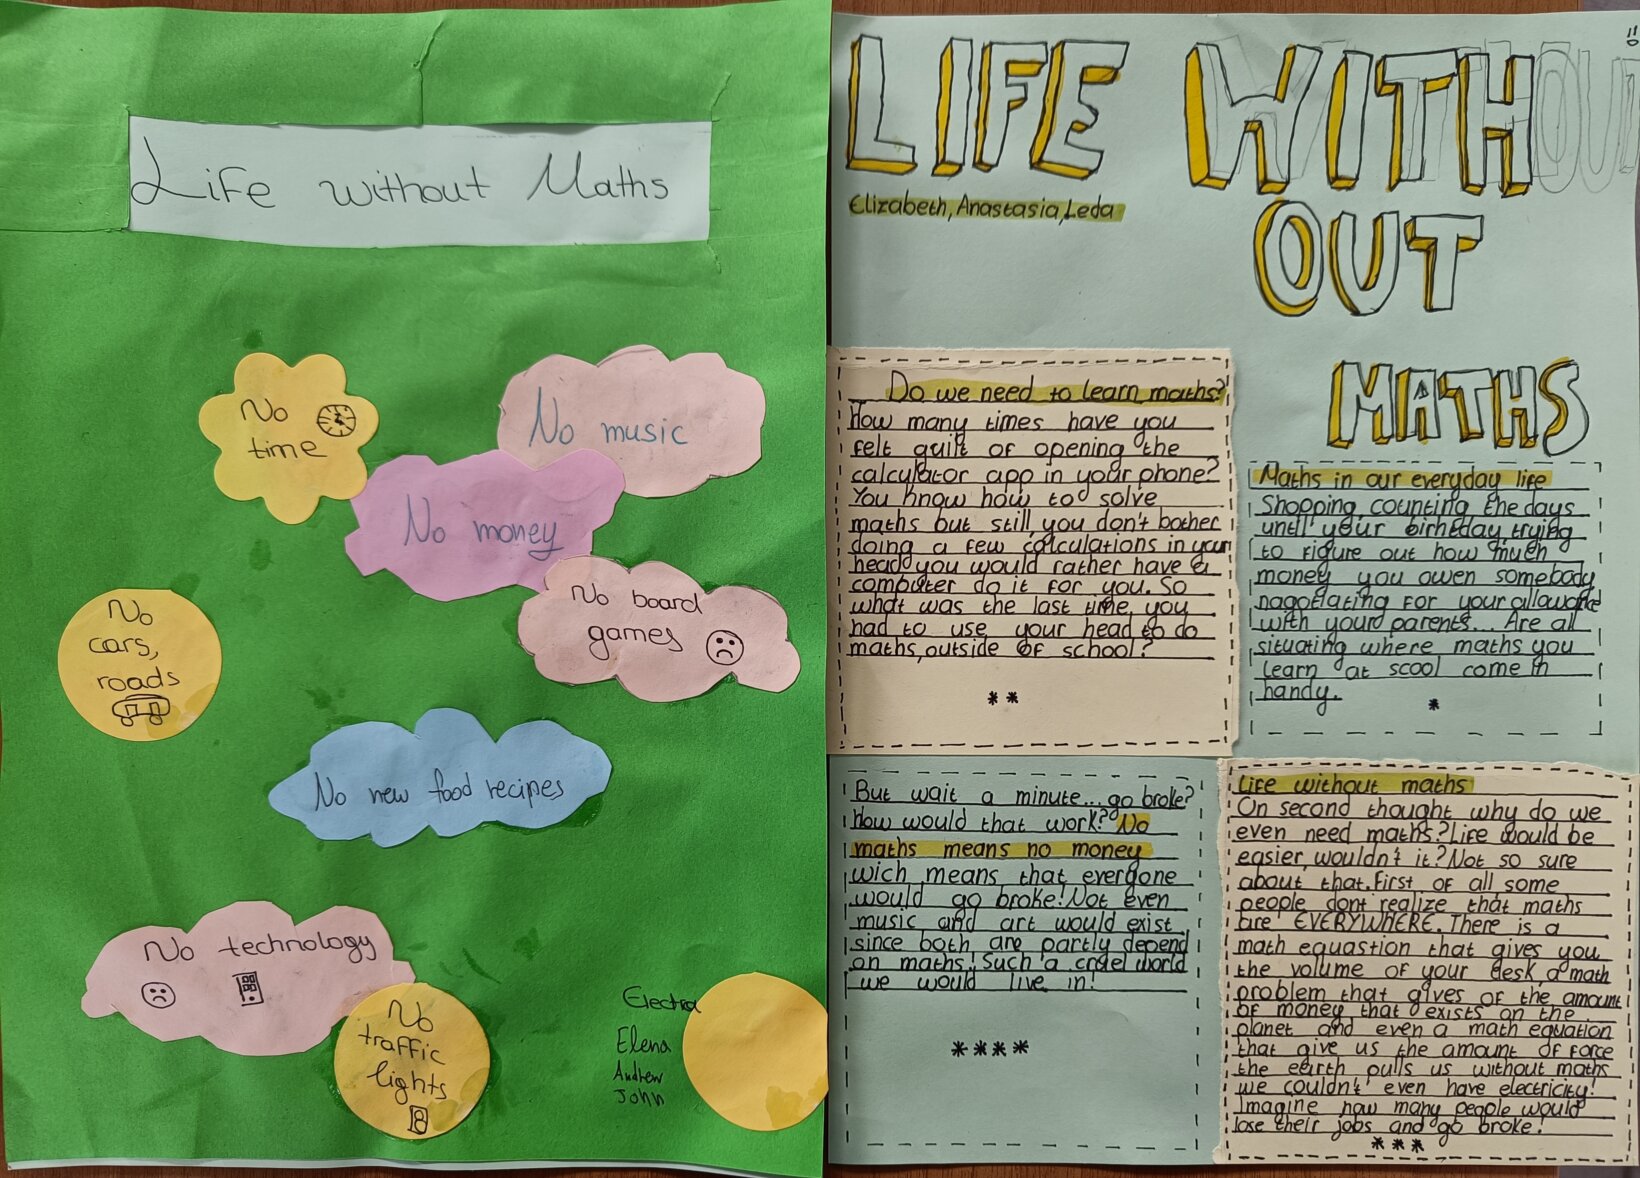 Life without Maths
No
time
No music
No money
No board
games
No
cars,
roads
No new food recipes
No technology
No
traffic
lights
Electra
Elena
Andrew
John
LIFE WITH
OUT
MATHS
Elizabeth, Anastasia, Leda
Do we need to learn maths?
How many times have you
felt guilt of opening the
calculator app in your phone?
You know how to solve
maths but still, you don't bother
doing a few calculations in your
head, you would rather have a
computer do it for you. So
what was the last time, you
had to use your head to do
maths, outside of school?
**
Maths in our everyday life
Shopping, counting the days
until your birheday, trying
to figure out how much
money you owen somebody
nagotiating for your
with yourd parents... Are all
situating where maths you
learn at scool come in
handy.
*
But wait a minute... go broke?
How would that work? No
maths means no money
wich means that everyone
would go broke! Not even
music and art would exist
since both are partly depend
on maths! Such a cruel world
we would live in!
****
Life without maths
On second thought why do we
even need maths? Life would be
easier, wouldn't it? Not so sure
about that. First of all some
people dont realize that maths
are EVERYWHERE. There is a
math equastion that gives you
the volume of your desk, a math
problem that gives of the amount
of money that exists on the
planet and even a math equation
that give us the amount of force
the earth pulls us without maths
we couldn't even have electricity!
Imagine how many people would
lose their jobs and go broke!
***